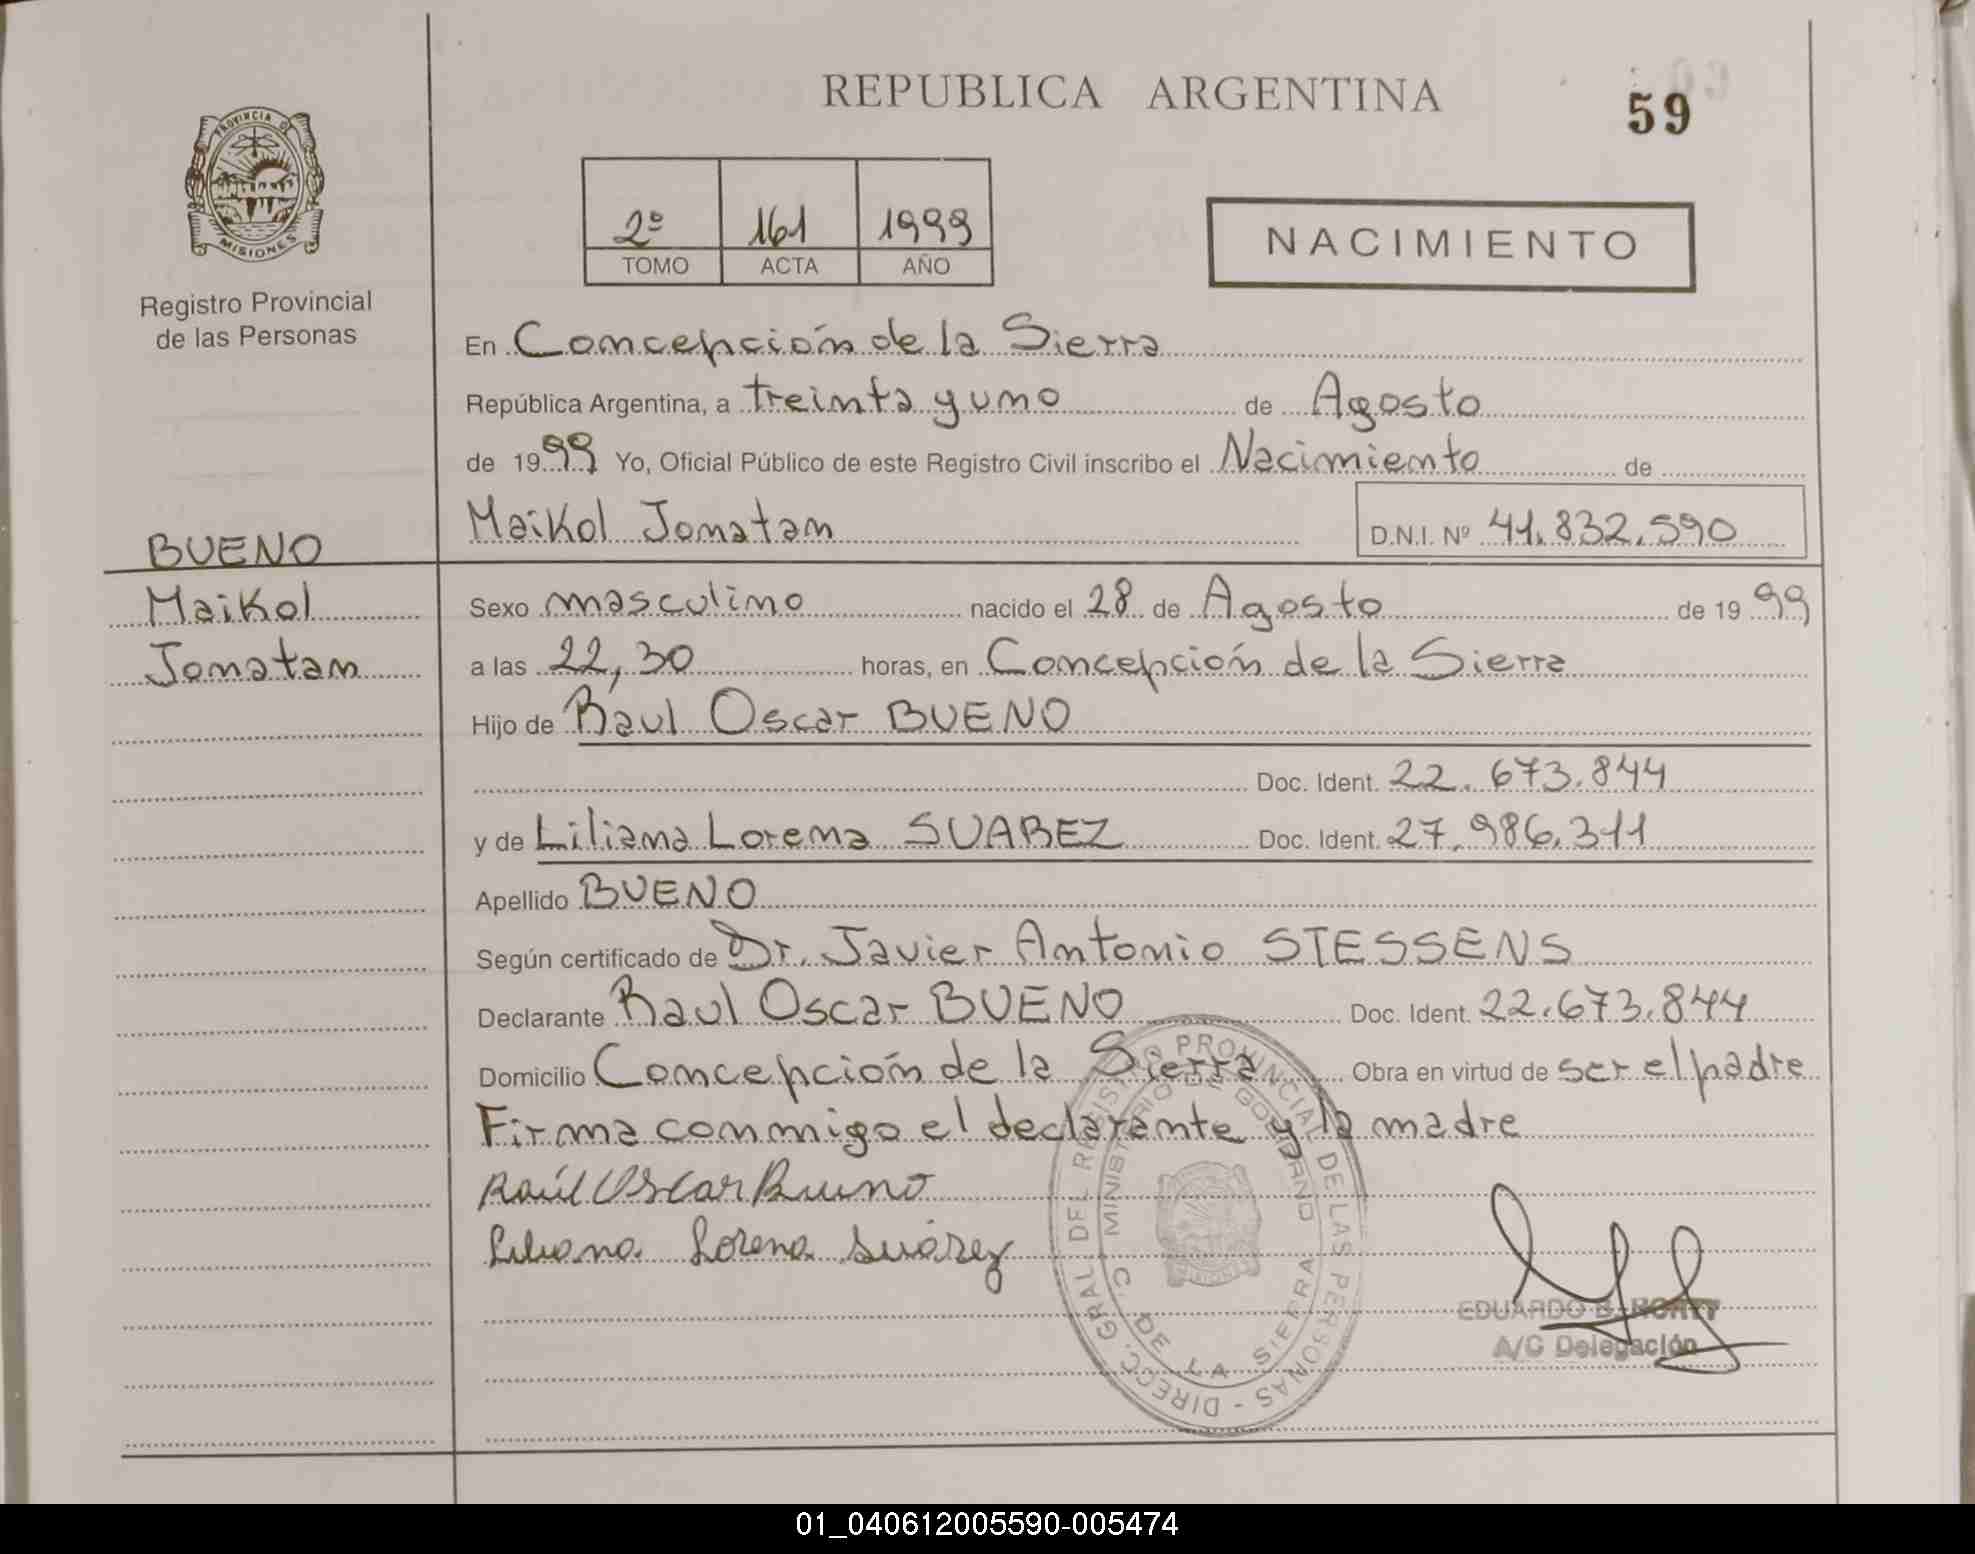 REPUBLICA ARGENTINA
59
PROVINCIA DE
MISIONES
Registro Provincial
de las Personas
2º 161 1999
TOMO ACTA AÑO
NACIMIENTO
En Concepción de la Sierra
República Argentina, a treinta y uno de Agosto
de 1999 Yo, Oficial Público de este Registro Civil inscribo el Nacimiento de
Maikol Jonatan D.N.I. Nº 41.832.590
BUENO
Maikol
Jonatan
Sexo masculino nacido el 28 de Agosto de 1999
a las 22,30 horas, en Concepción de la Sierra
Hijo de Raul Oscar BUENO
Doc. Ident. 22.673.844
y de Liliana Lorena SUAREZ Doc. Ident. 27.986.311
Apellido BUENO
Según certificado de Dr. Javier Antonio STESSENS
Declarante Raul Oscar BUENO Doc. Ident. 22.673.844
Domicilio Concepción de la Sierra Obra en virtud de ser el padre
Firma conmigo el declarante y la madre
Raúl Oscar Bueno
Liliana Lorena Suárez
DIRECC. GRAL. DEL REGISTRO PROVINCIAL DE LAS PERSONAS -
MINISTERIO DE GOBIERNO
C. DE LA SIERRA
EDUARDO B.
A/C Delegación
01_040612005590-005474